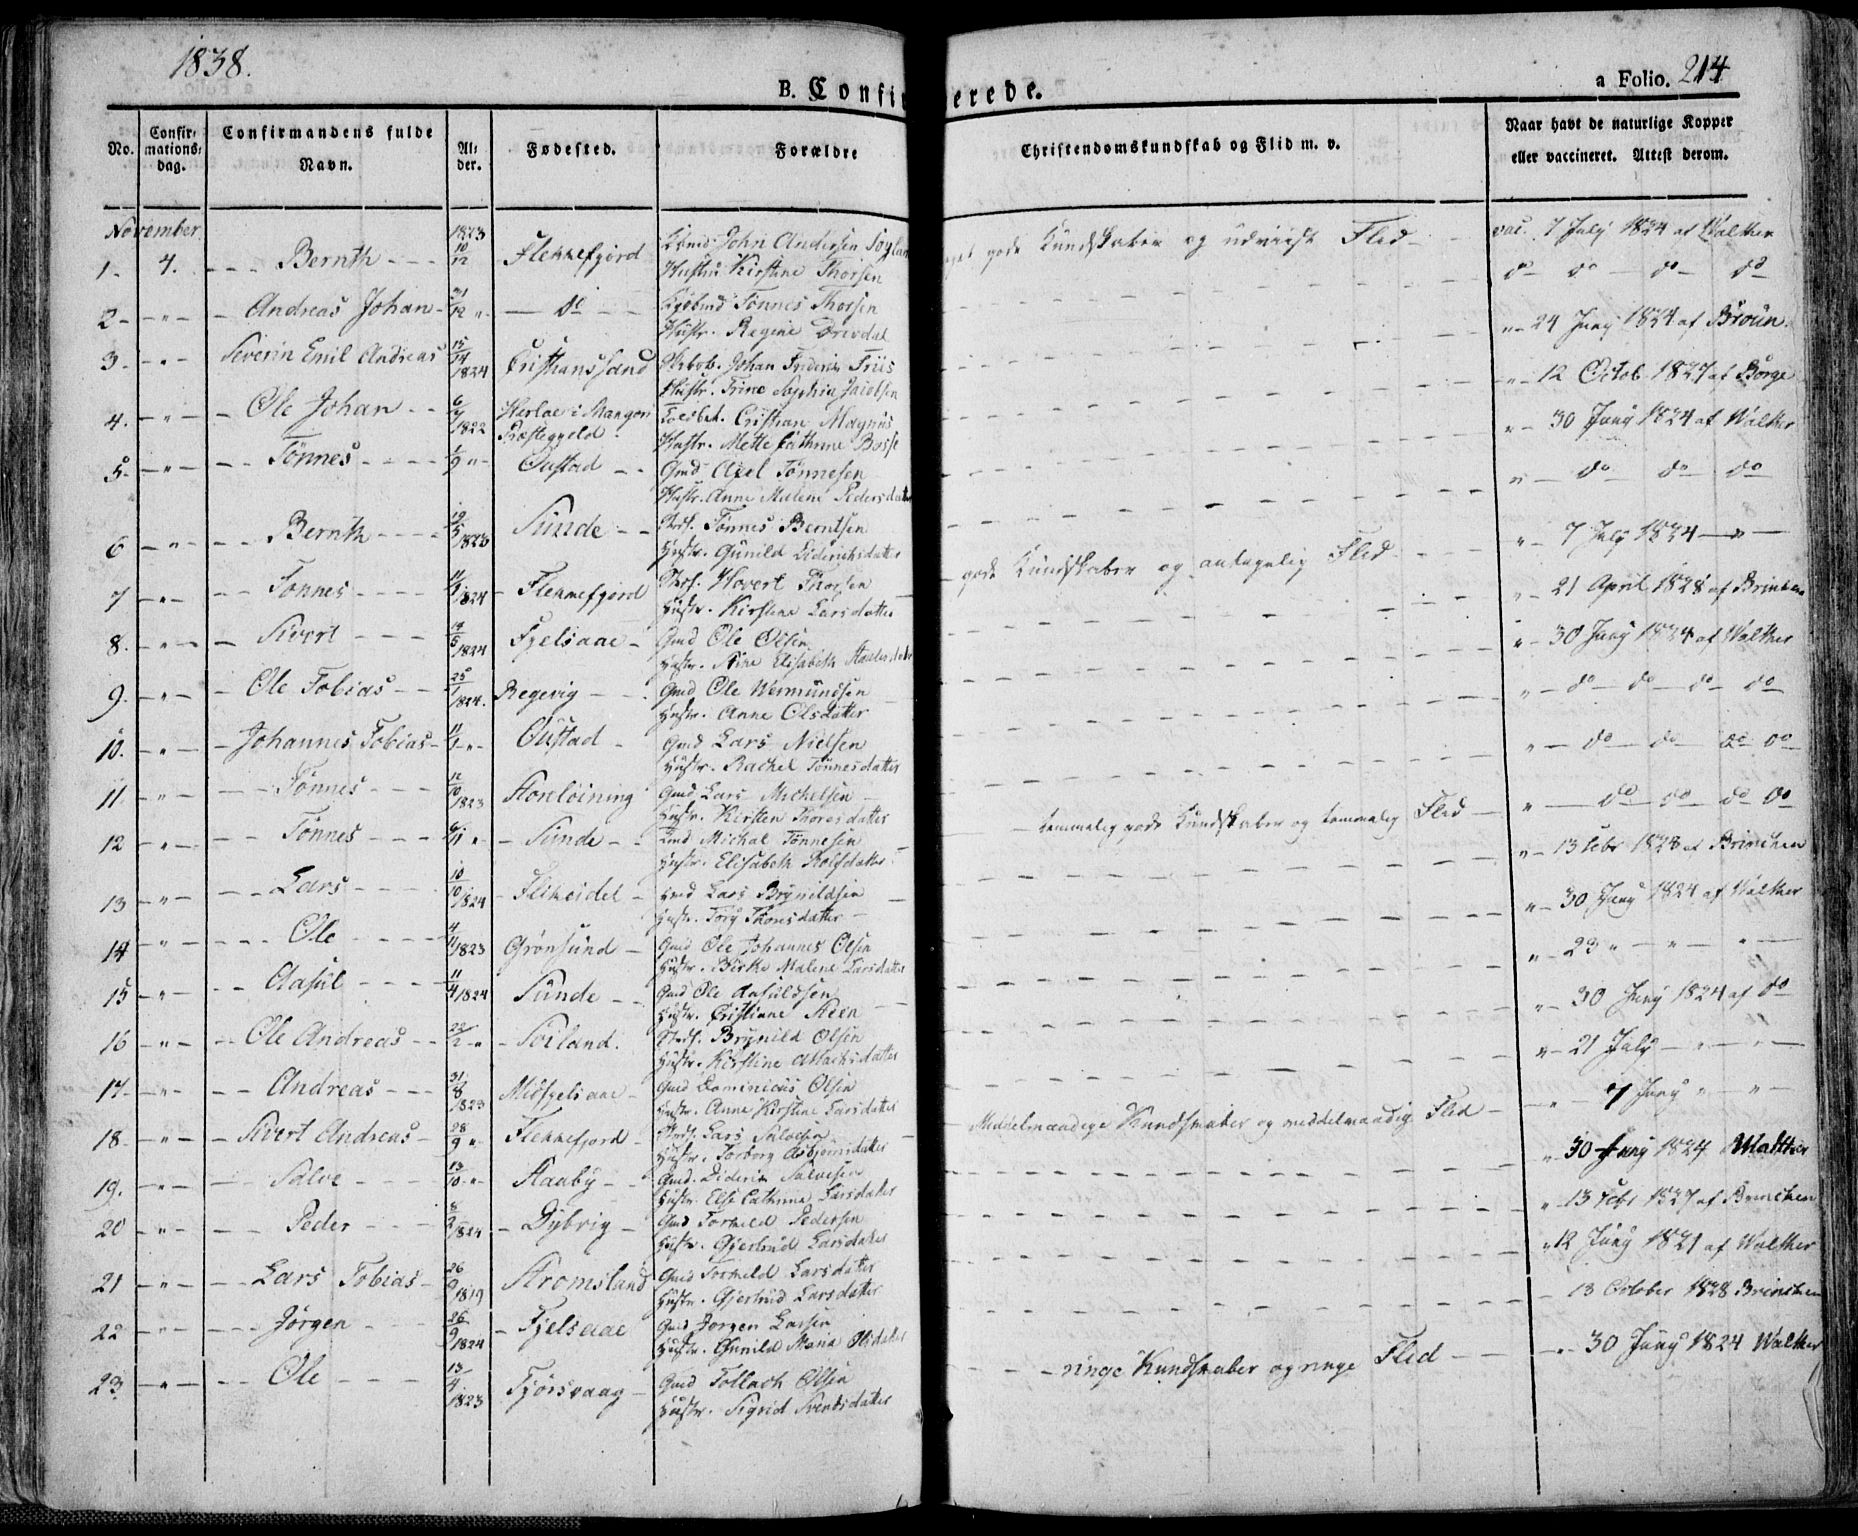 1838.
B. Confirmerede.
a Folio. 214
No.
Confir-
mations-
dag.
Confirmandens fulde
Navn.
Al-
der.
Fødested.
Forældre
Christendomskundskab og Flid m. v.
Naar havt de naturlige Kopper
eller vaccineret. Attest derom.
November
1 - 4. - - - Bernth - - - 1823 10/12 Flekkefjord John Andersen
Hustru Kirstine Thorsen
gode Kundskaber og udviist Flid - vac. 7 July 1824 af Walther
do do do do
2 - " - Andreas Johan - 31/12 " - do - - Tønnes Thorsen
Hustr. Regine Drevdal
" - 24 Juny 1824 af Broun
3 - " - Severin Emil Andreas 15/14 1824 Cristianssand Johan Friderik Friis
Hustr. Trine Sophia
" - 12 Octob 1827 af Borge
4. - " - Ole Johan - - 6/9 1822 Herløe i Manger Præstegjeld. Toldbet. Cristian Magnus
Hustr. Mette Cathrine Bosse
" - 30 Juny 1824 af Walther
5 - " - - Tønnes - - - 1/9 " - Oustad - - Gmd Axel Tønnesen
Hustr. Anne Malene Pedersdatter
" - do do do
6 - " - - Bernth - - - 19/5 1823 Sunde - - Tønnes Berntsen
Hustr. Gunild Dideriksdatter
gode Kundskaber og antagelig Flid - - - " - 7 July 1824 - " -
7 - " - - Tønnes - - - 11/3 1824 - Flekkefjord Hovert Thorsen
Hustr. Kirstine Larsdatter
" - 21 April 1828 af Brinchen
8. - " - - Sivert - - - 19/5 1824 Fjelsaae - Gmd Ole Olsen
Hustr. Stine Elisabeth
" - 30 Juny 1824 af Walther
9 - " - - Ole Tobias - - 25/1 1824. Regevig - - - Gmd Ole Wermundsen
Hustr. Anne Olsdatter
" - do - do - do - do
10. - " - - Johannes Tobias - 11/1 - " - Oustad - Gmd Lars Nielsen
Hustr. Rachel Tønnesdatter
" - do - do do do
11 - " - - Tønnes - - - 12/10 1823 Storeløining Gmd Lars Michelsen -
Hustr. Kirsten Thoresdatter
" - do - do do do
12 - " - - Tønnes - - - 6/11 " - Sunde - - Michal Tønnesen
Hustr. Elisabeth Rolfsdatter
- temmelig gode Kundskaber og temmelig Flid - " - 13 Febr 1828 af Brinchen
13 - " - - Lars - - - 10/10 1824 - Flikeidet - Lars Brynildsen
Hustr. Tory Thorsdatter -
" - 30 Juny 1824 af Walther
14 - " - - Ole - - - 4/11 1823 Grønsund - Gmd Ole Johannes Olsen
Hustr. Birthe Malene Larsdatter
" - 23 " - " - " -
15 - " - - Aasul - - - 11/4 1824 Sunde - - Gmd Ole Aasuldsen
Hustr. Cristiane Steen
" - 30 Juny 1824 af do
16 - " - - Ole Andreas - - 22/2 - " - Søiland. Brynild Olsen
Hustr. Kirstine
" - 21 July - " - " -
17 - " - - Andreas - - - 31/8 1823 Midfjelsaae - Gmd Dominicus Olsen
Hustr. Anne Kirstine Larsdatter
- " - 7 Juny " - " -
18 - " - - Sivert Andreas - 28/9 " - Flekkefjord - Lars Salvesen
Hustr. Torborg Asbjørnsdatter
Middelmaadige Kundskaber og middelmaadig Flid - " 30 Juny 1824 Walther
19. - " - - Salve - - - 13/10 - " - Staaby - - Gmd. Diderik Salvesen
Hustr. Else Cathrine Larsdatter
" 13 Febr 1827 af Brinchen
20 - " - - Peder - - - 8/2 1824 - Dybvig - Gmd Torkild Pedersen
Hustr. Gjertrud Larsdatter
" 12 Juny 1821 af Walther
21 - " - - Lars Tobias - 26/9 1819 Stromsland Gmd Torkild Larsdatter
Hustr. Gjertrud Larsdatter
- 13 October 1828 Brinchen
22 - " - - Jørgen - - - 26/9 1824 - Fjelsaae Gmd Jørgen Larsen
Hustr. Gunild Maria Olsdatter
- " - 30 Juny 1824 Walther
23 - " - - Ole - - - 13/4 1823 Fjørsvaag - Gmd Tollach Olsen
Hustr. Sigrid Svendsdatter
- - - ringe Kundskaber og ringe Flid - -